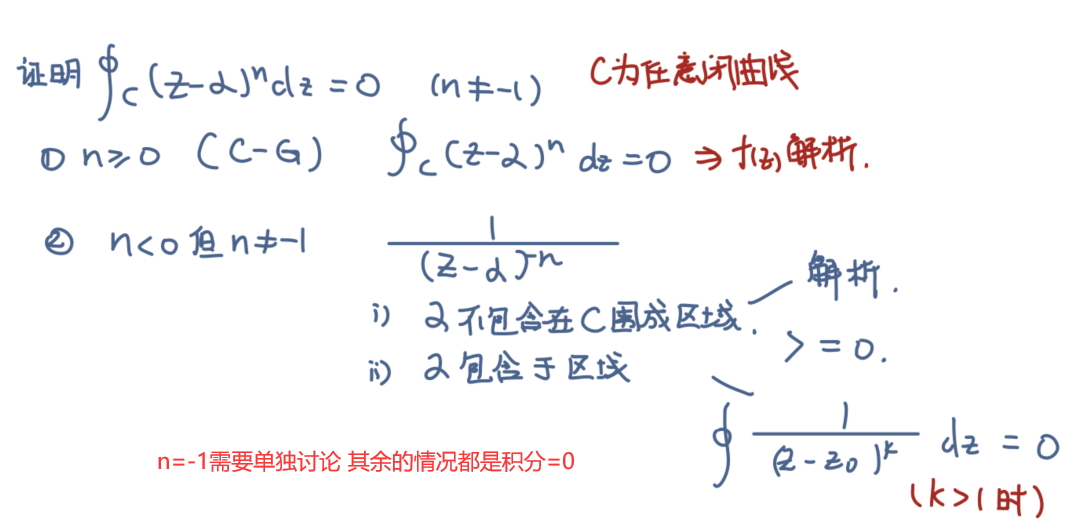 证明 ∮_C (z-α)^n dz = 0 (n≠-1) C为任意闭曲线
① n≥0 (C-G) ∮_C (z-α)^n dz = 0 ⇒ f(z)解析.
② n<0 但 n≠-1 1/(z-α)^{-n}
i) α不包含在C围成区域. 解析.
> = 0.
ii) α包含于区域
∮ 1/(z-z₀)^k dz = 0
(k>1时)
n=-1需要单独讨论 其余的情况都是积分=0